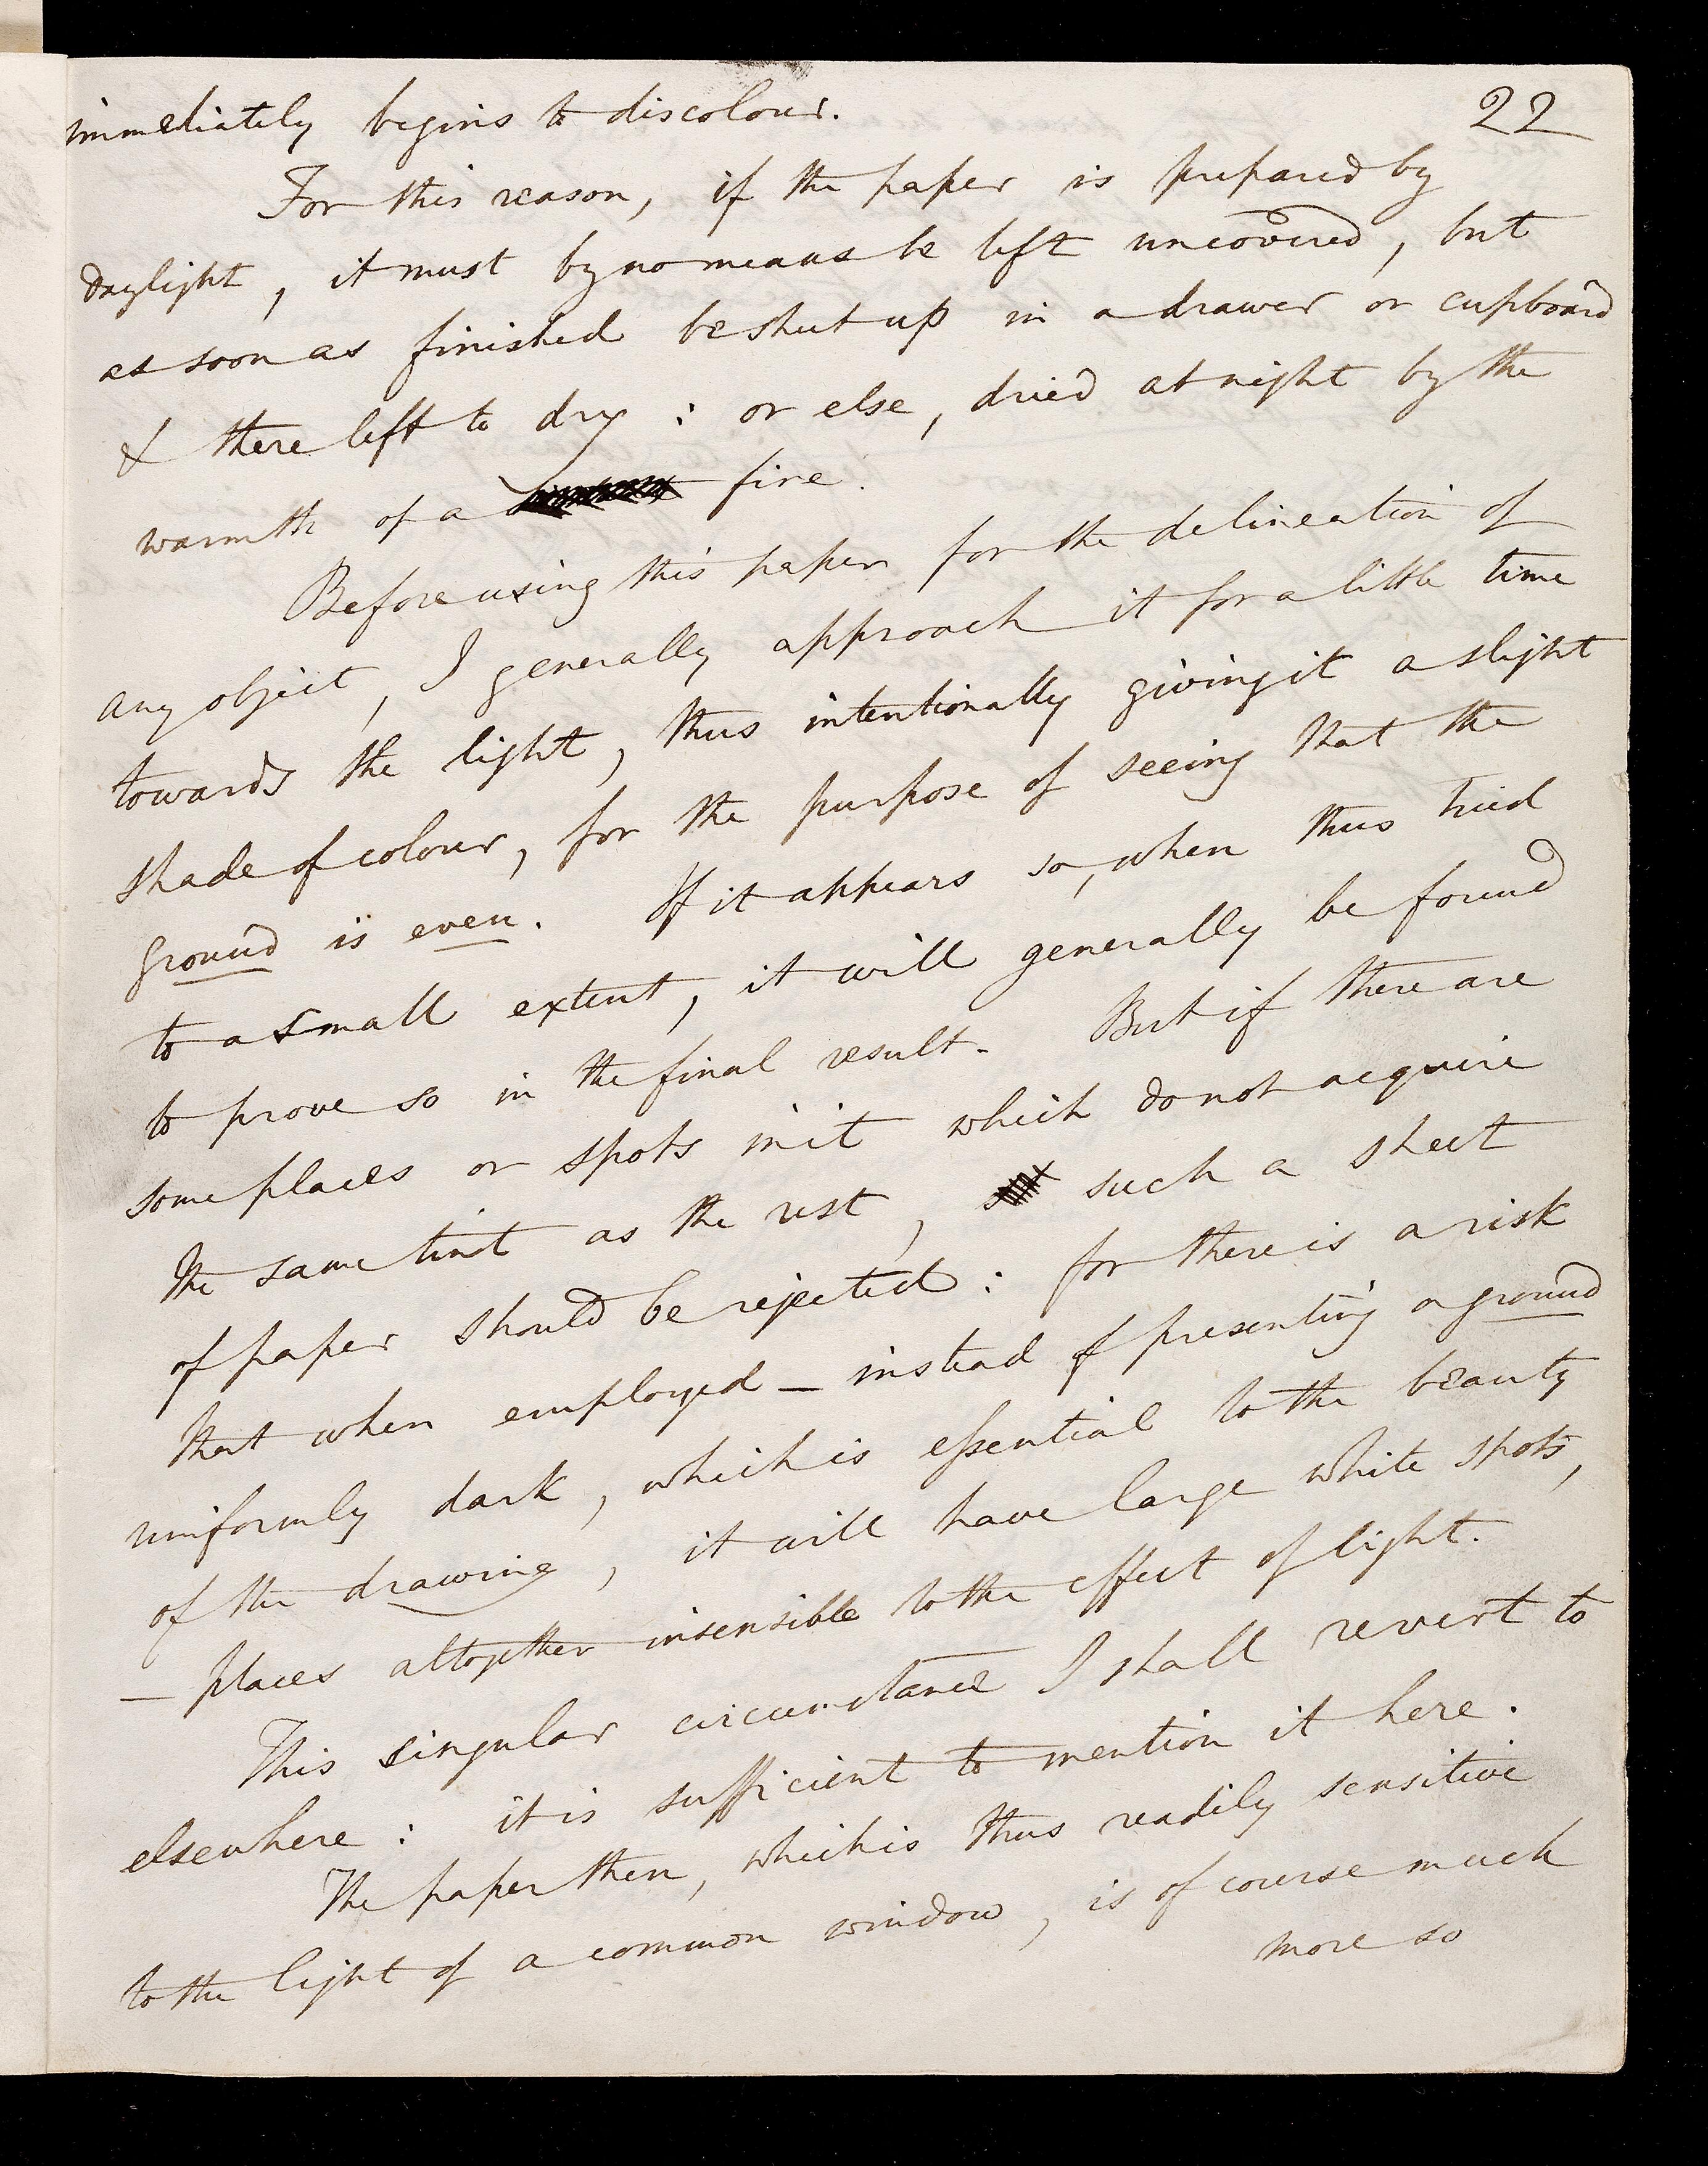 22
immediately begins to discolour.
For this reason, if the paper is prepared by
daylight, it must by no means be left uncovered, but
as soon as finished be shut up in a drawer or cupboard
& there left to dry: or else, dried at night by the
warmth of a fire.
Before using this paper for the delineation of
any object, I generally approach it for a little time
towards the light, thus intentionally giving it a slight
shade of colour, for the purpose of seeing that the
ground is even. If it appears so, when thus tried
to a small extent, it will generally be found
to prove so in the final result. But if there are
some places or spots in it which do not acquire
the same tint as the rest, such a sheet
of paper should be rejected: for there is a risk
that when employed — instead of presenting a ground
uniformly dark, which is essential to the beauty
of the drawing, it will have large white spots,
— places altogether insensible to the effect of light.
This singular circumstance I shall revert to
elsewhere: it is sufficient to mention it here.
The paper then, which is thus readily sensitive
to the light of a common window, is of course much
more so